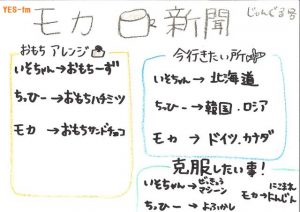 YES-fm
モカ新聞
じゃんぐる号
おもちアレンジ
いそちゃん→おもちーず
ちっひー→おもちハチミツ
モカ→おもちサンドチョコ
今行きたい所
いそちゃん→北海道
ちっひー→韓国・ロシア
モカ→ドイツ、カナダ
克服したい事!
いそちゃん→ぜっきょうマシーン
ちっひー→よふかし
モカ→にこまれにんじん